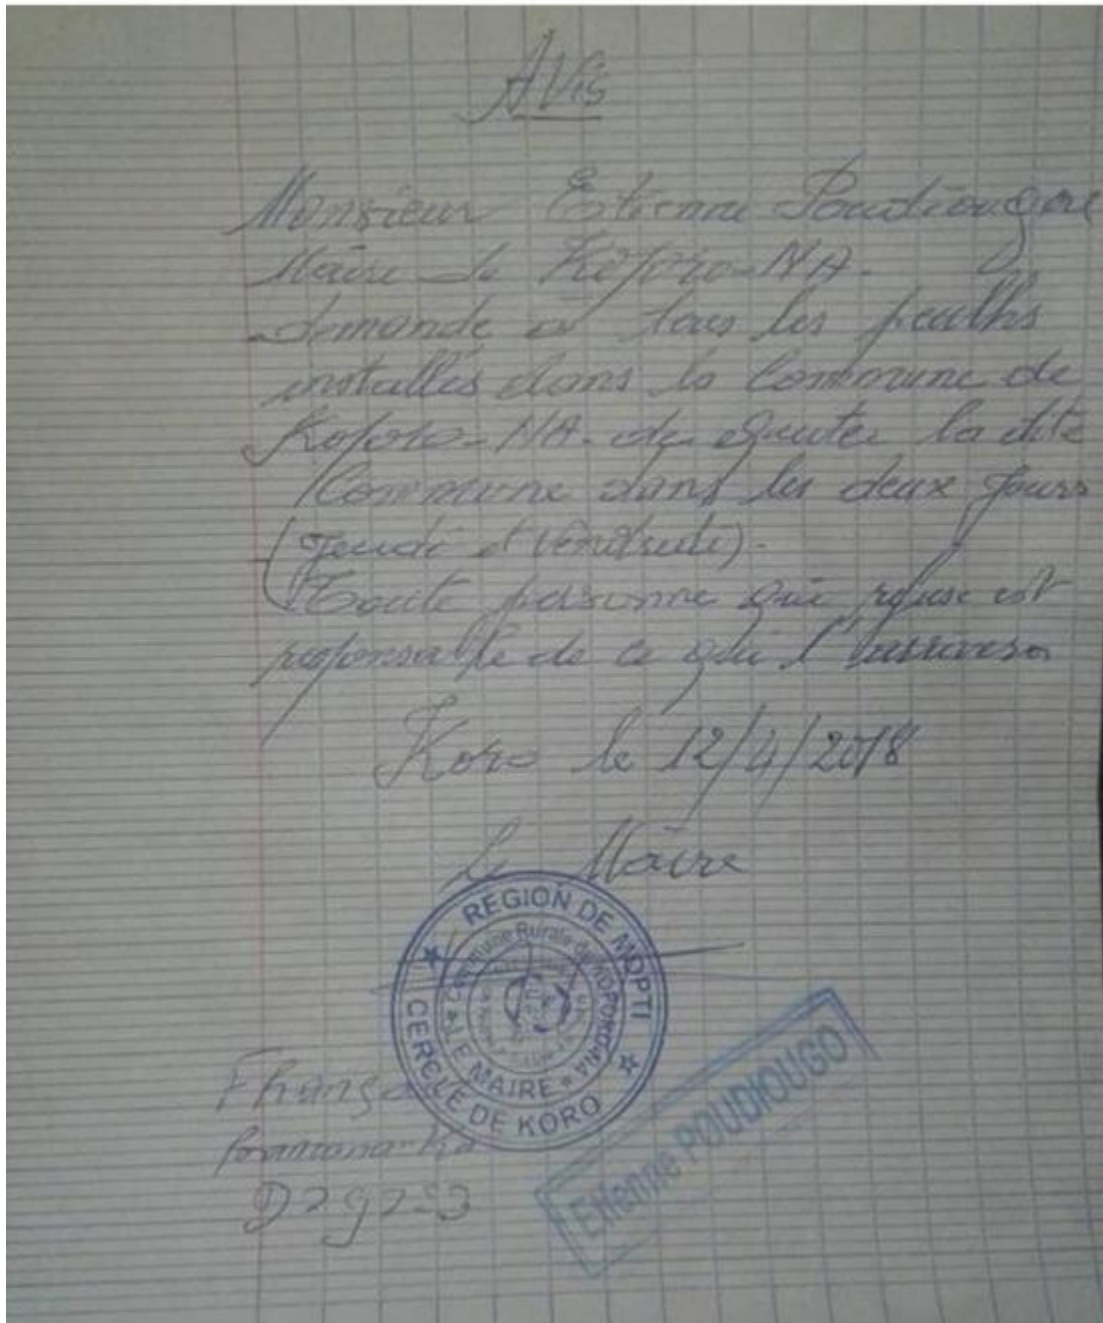 AVis
Monsieur Etienne Poudiougou
Maire de Koporo-NA.
demande à tous les peulhs
installés dans la Commune de
Koporo-NA. de quiter la dite
Commune dans les deux jours
(Jeudi et Vendredi).
Toute personne qui refuse est
responsable de ce qui l'arrivera
Koro le 12/4/2018
Le Maire
REGION DE MOPTI
Commune Rurale de KOPORONA
LE MAIRE
CERCLE DE KORO
Etienne POUDIOUGO